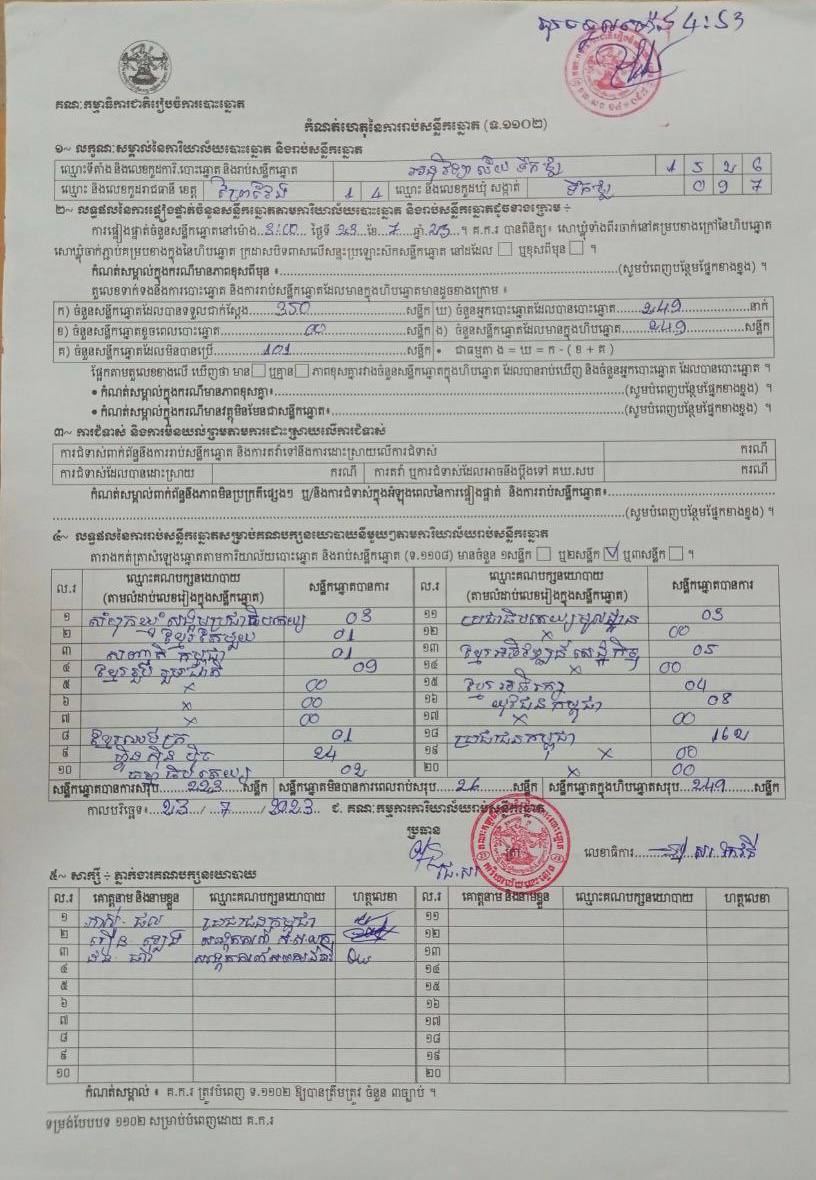 4:53
គណៈកម្មាធិការជាតិរៀបចំការបោះឆ្នោត
កំណត់ហេតុនៃការរាប់សន្លឹកឆ្នោត (ទ.១១០២)
១~ លក្ខណៈសម្គាល់នៃការិយាល័យបោះឆ្នោត និងរាប់សន្លឹកឆ្នោត
ឈ្មោះទីតាំង និងលេខកូដការិ.បោះឆ្នោត និងរាប់សន្លឹកឆ្នោត អនុវិទ្យាល័យ ទឹកថ្លា
ឈ្មោះ និងលេខកូដរាជធានី ខេត្ត ព្រៃវែង 1 4 ឈ្មោះ និងលេខកូដឃុំ សង្កាត់ ទឹកថ្លា 0 9 7
២~ លទ្ធផលនៃការផ្ទៀងផ្ទាត់ចំនួនសន្លឹកឆ្នោតតាមការិយាល័យបោះឆ្នោត និងរាប់សន្លឹកឆ្នោតដូចខាងក្រោម ÷
ការផ្ទៀងផ្ទាត់ចំនួនសន្លឹកឆ្នោតនៅម៉ោង 3:00 ថ្ងៃទី 23 ខែ 7 ឆ្នាំ 23 ។ គ.ក.រ បានពិនិត្យ៖ សោឃ្លុំទាំងពីរចាក់នៅគម្របខាងក្រៅនៃហិបឆ្នោត
សោឃ្លុំចាក់ភ្ជាប់គម្របខាងក្នុងនៃហិបឆ្នោត ក្រដាសបិទពាសលើសន្ទះប្រឡោះស៊កសន្លឹកឆ្នោត នៅដដែល ☐ ឬខុសពីមុន ☐ ។
កំណត់សម្គាល់ក្នុងករណីមានភាពខុសពីមុន ៖ (សូមបំពេញបន្ថែមផ្នែកខាងខ្នង) ។
តួលេខទាក់ទងនឹងការបោះឆ្នោត និងការរាប់សន្លឹកឆ្នោតដែលមានក្នុងហិបឆ្នោតមានដូចខាងក្រោម ៖
ក) ចំនួនសន្លឹកឆ្នោតដែលបានទទួលជាក់ស្តែង 350 សន្លឹក ឃ) ចំនួនអ្នកបោះឆ្នោតដែលបានបោះឆ្នោត 249 នាក់
ខ) ចំនួនសន្លឹកឆ្នោតខូចពេលបោះឆ្នោត 00 សន្លឹក ង) ចំនួនសន្លឹកឆ្នោតដែលមានក្នុងហិបឆ្នោត 249 សន្លឹក
គ) ចំនួនសន្លឹកឆ្នោតដែលមិនបានប្រើ 101 សន្លឹក • ជាធម្មតា ង = ឃ = ក - ( ខ + គ )
ផ្អែកតាមតួលេខខាងលើ ឃើញថា មាន ☐ ឬគ្មាន ☐ ភាពខុសគ្នារវាងចំនួនសន្លឹកឆ្នោតក្នុងហិបឆ្នោត ដែលបានរាប់ឃើញ និងចំនួនអ្នកបោះឆ្នោត ដែលបានបោះឆ្នោត ។
• កំណត់សម្គាល់ក្នុងករណីមានភាពខុសគ្នា៖ (សូមបំពេញបន្ថែមផ្នែកខាងខ្នង) ។
• កំណត់សម្គាល់ក្នុងករណីមានវត្ថុមិនមែនជាសន្លឹកឆ្នោត៖ (សូមបំពេញបន្ថែមផ្នែកខាងខ្នង) ។
៣~ ការជំទាស់ និងការមិនយល់ព្រមតាមការដោះស្រាយលើការជំទាស់
ការជំទាស់ពាក់ព័ន្ធនឹងការរាប់សន្លឹកឆ្នោត និងការតវ៉ាទៅនឹងការដោះស្រាយលើការជំទាស់ ករណី
ការជំទាស់ដែលបានដោះស្រាយ ករណី ការតវ៉ា ឬការជំទាស់ដែលអាចនឹងប្តឹងទៅ គឃ.សប ករណី
កំណត់សម្គាល់ពាក់ព័ន្ធនឹងភាពមិនប្រក្រតីផ្សេងៗ ឬ/និងការជំទាស់ក្នុងអំឡុងពេលនៃការផ្ទៀងផ្ទាត់ និងការរាប់សន្លឹកឆ្នោត៖
(សូមបំពេញបន្ថែមផ្នែកខាងខ្នង) ។
៤~ លទ្ធផលនៃការរាប់សន្លឹកឆ្នោតសម្រាប់គណបក្សនយោបាយនីមួយៗតាមការិយាល័យរាប់សន្លឹកឆ្នោត
តារាងកត់ត្រាសំឡេងឆ្នោតតាមការិយាល័យបោះឆ្នោត និងរាប់សន្លឹកឆ្នោត (ទ.១១០៨) មានចំនួន ១សន្លឹក ☐ ឬ២សន្លឹក ☑ ឬ៣សន្លឹក ☐ ។
ល.រ ឈ្មោះគណបក្សនយោបាយ (តាមលំដាប់លេខរៀងក្នុងសន្លឹកឆ្នោត) សន្លឹកឆ្នោតបានការ ល.រ ឈ្មោះគណបក្សនយោបាយ (តាមលំដាប់លេខរៀងក្នុងសន្លឹកឆ្នោត) សន្លឹកឆ្នោតបានការ
១ សំបុកឃ្មុំសង្គមប្រជាធិបតេយ្យ 03 ១១ ប្រជាធិបតេយ្យមូលដ្ឋាន 03
២ ខ្មែរតែមួយ 01 ១២ × 00
៣ សញ្ជាតិកម្ពុជា 01 ១៣ ខ្មែរអភិវឌ្ឍន៍សេដ្ឋកិច្ច 05
៤ ខ្មែររួបរួមជាតិ 09 ១៤ × 00
៥ × 00 ១៥ ខ្មែរអភិរក្ស 04
៦ × 00 ១៦ យុវជនកម្ពុជា 08
៧ × 00 ១៧ × 00
៨ ខ្មែរឈប់ក្រ 01 ១៨ ប្រជាជនកម្ពុជា 162
៩ ហ្វ៊ុនស៊ិនប៉ិច 24 ១៩ × 00
១០ ធម្មាធិបតេយ្យ 02 ២០ × 00
សន្លឹកឆ្នោតបានការសរុប 223 សន្លឹក សន្លឹកឆ្នោតមិនបានការពេលរាប់សរុប 26 សន្លឹក សន្លឹកឆ្នោតក្នុងហិបឆ្នោតសរុប 249 សន្លឹក
កាលបរិច្ឆេទ៖ 23 / 7 / 2023 ជ. គណៈកម្មការការិយាល័យរាប់សន្លឹកឆ្នោត
ប្រធាន
លេខាធិការ
៥~ សាក្សី ÷ ភ្នាក់ងារគណបក្សនយោបាយ
ល.រ គោត្តនាម និងនាមខ្លួន ឈ្មោះគណបក្សនយោបាយ ហត្ថលេខា ល.រ គោត្តនាម និងនាមខ្លួន ឈ្មោះគណបក្សនយោបាយ ហត្ថលេខា
១ ប្រជាជនកម្ពុជា ១១
២ ១២
៣ ១៣
៤ ១៤
៥ ១៥
៦ ១៦
៧ ១៧
៨ ១៨
៩ ១៩
១០ ២០
កំណត់សម្គាល់ ៖ គ.ក.រ ត្រូវបំពេញ ទ.១១០២ ឱ្យបានត្រឹមត្រូវ ចំនួន ៣ច្បាប់ ។
ទម្រង់បែបបទ ១១០២ សម្រាប់បំពេញដោយ គ.ក.រ